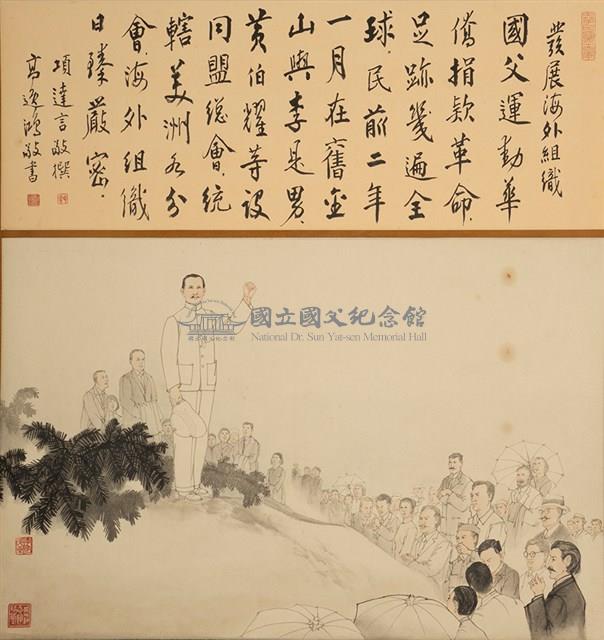 發展海外組織
國父運動華
僑捐款革命、
足跡幾遍全
球、民前二年
一月在舊金
山與李是男、
黃伯耀等設
同盟總會、統
轄美洲各分
會、海外組織
日臻嚴密、
項達言敬撰
高逸鴻敬書
國立國父紀念館
National Dr. Sun Yat-sen Memorial Hall